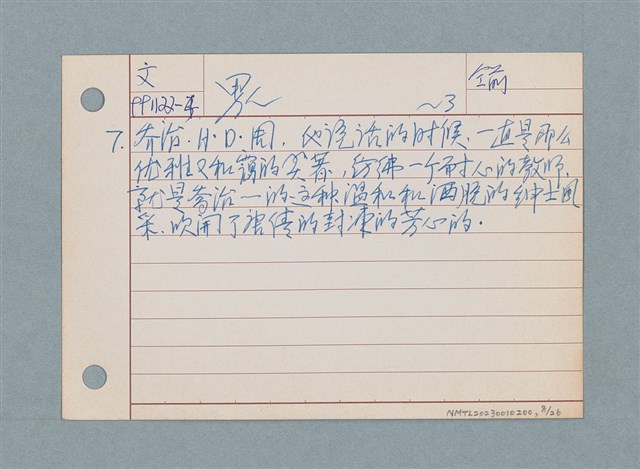 文
PP1122-
男人
~3
7. 乔治·H·D·周, 他说话的时候, 一直是那么
优雅又和蔼的笑著, 彷彿一个耐心的教师.
就是乔治一的这种温和和洒脱的绅士风
采. 吹开了唐倩的封凍的芳心的.
NMTL20230010200, 8/26